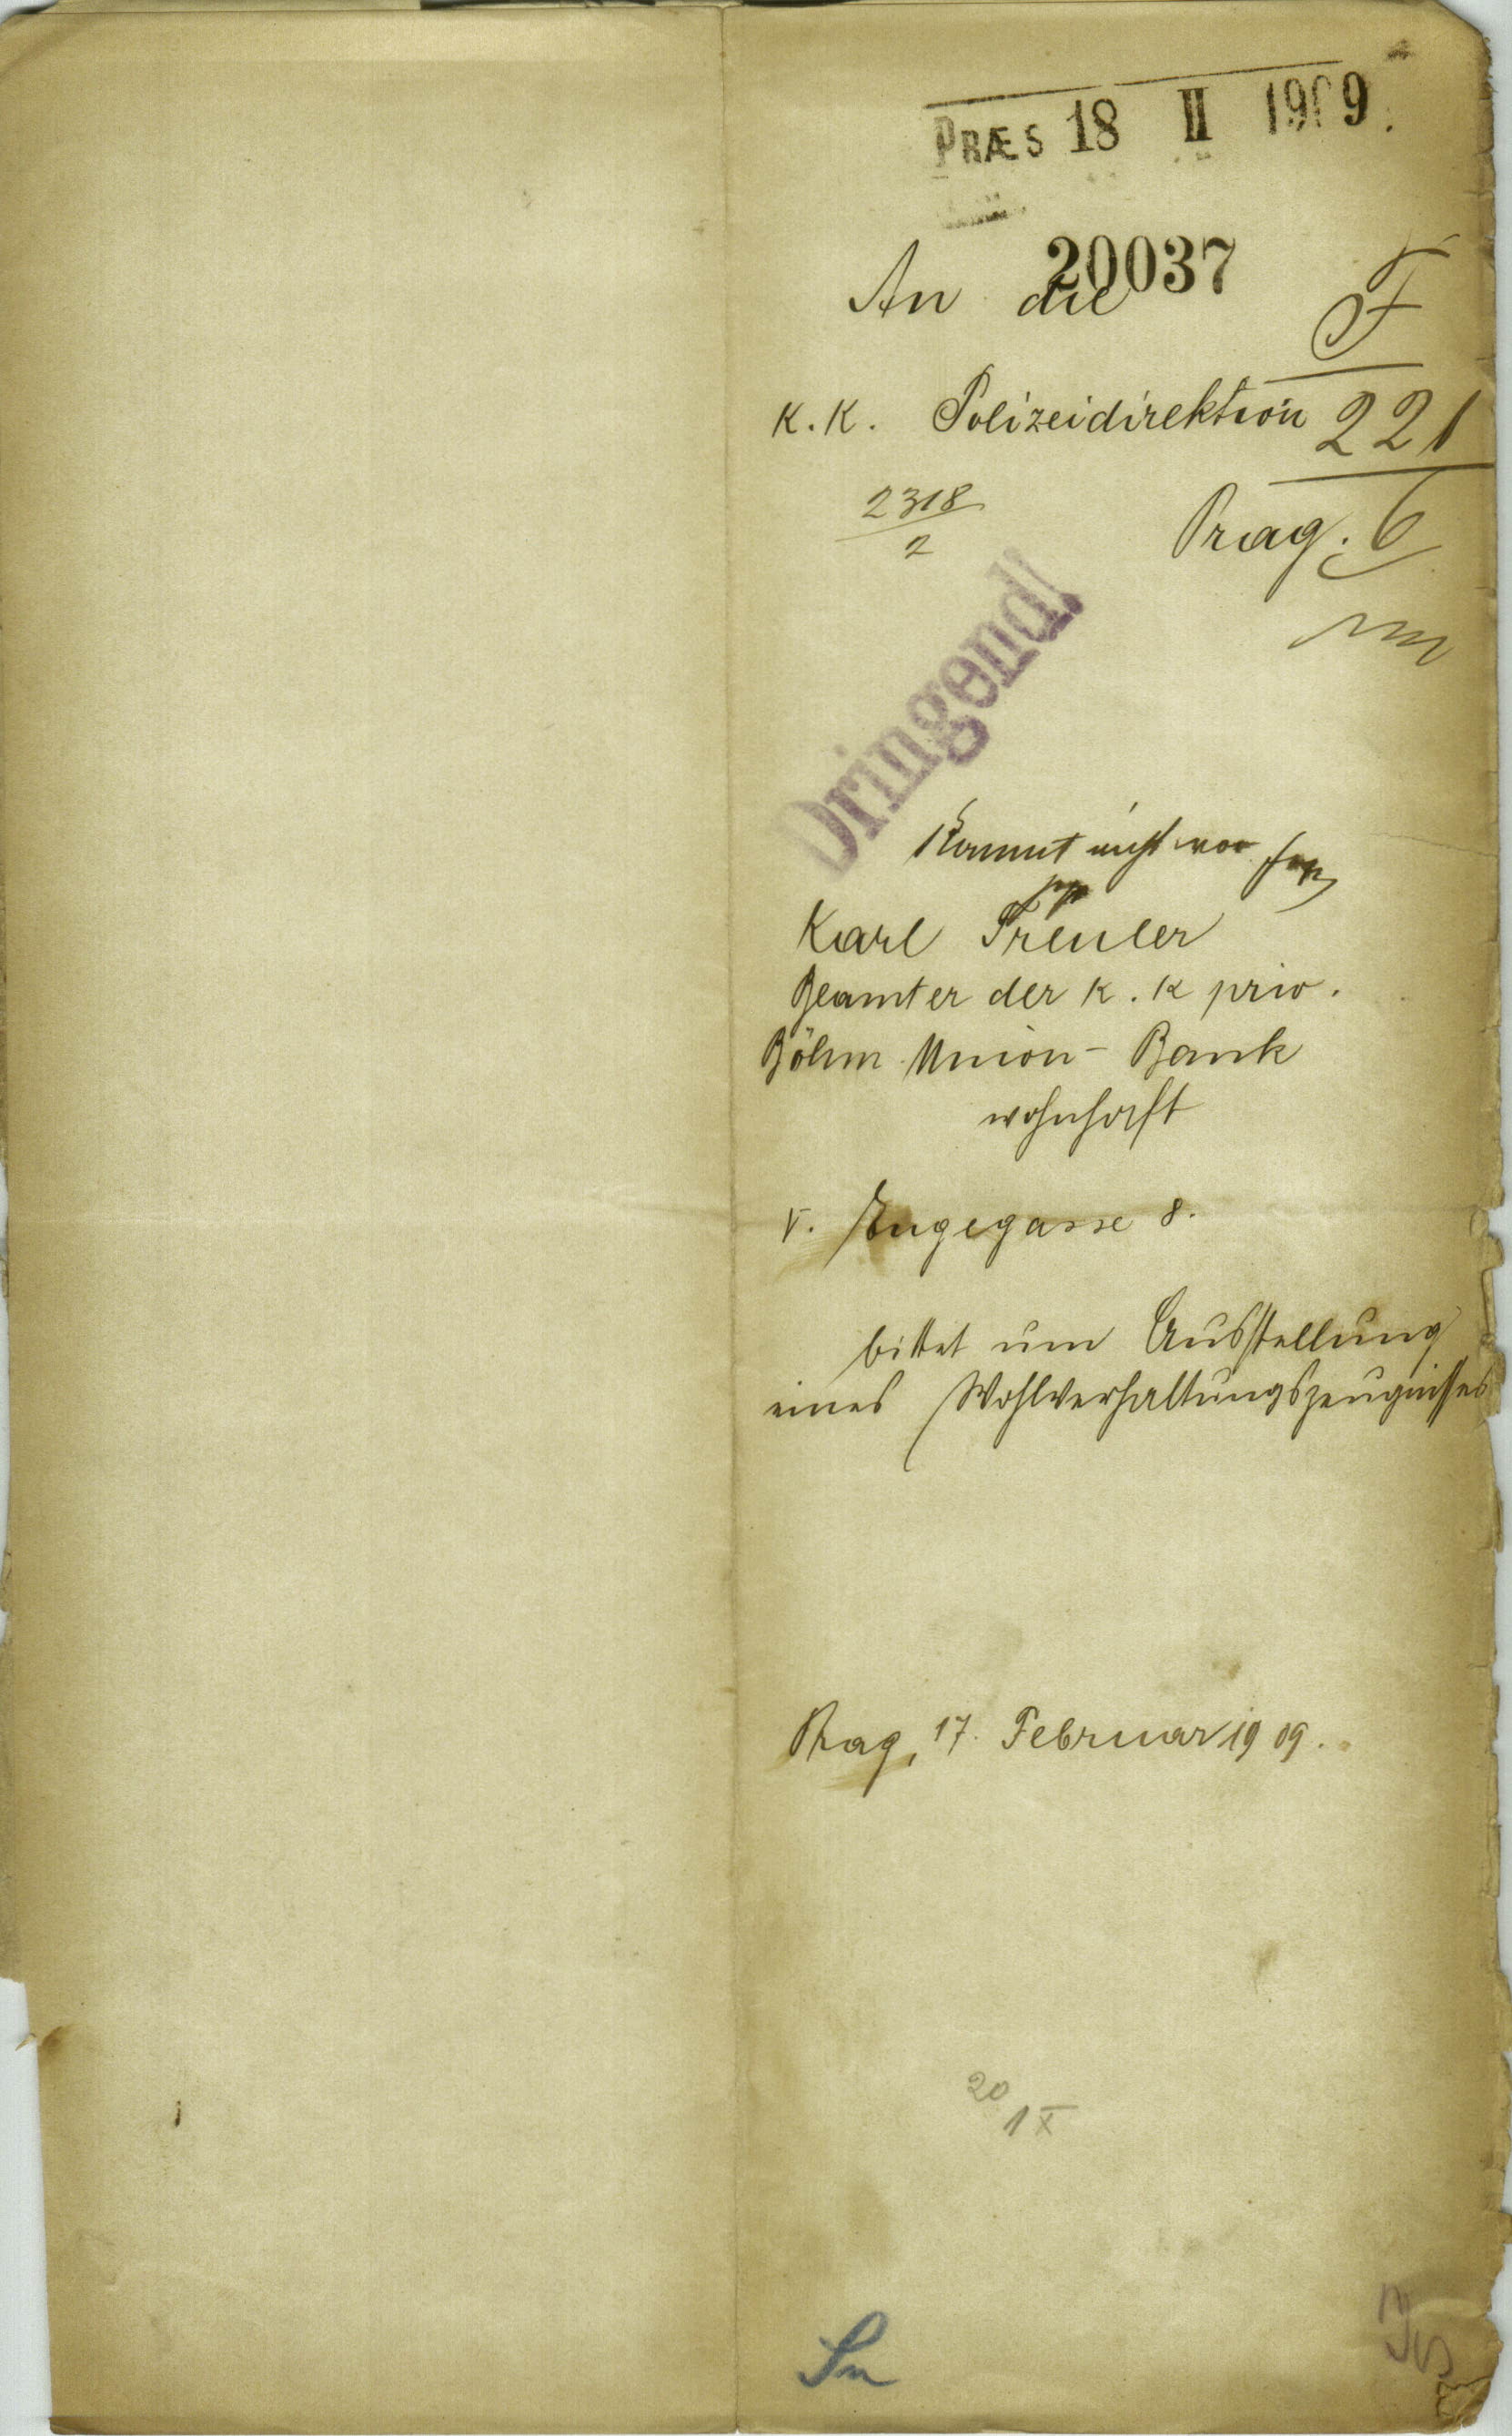 PRÆS 18 II 1909
20037
An die
F
k. k. Polizeidirektion
221
6
2318
2
Prag.
Dringend!
Kommt nicht vor
Karl
Beamter der k. k priv.
Böhm Union - Bank
wohnhaft
V. Engegasse 8.
bittet um Ausstellung
eines Wohlverhaltungszeugnisses
Prag, 17. Februar 1909.
20
1X